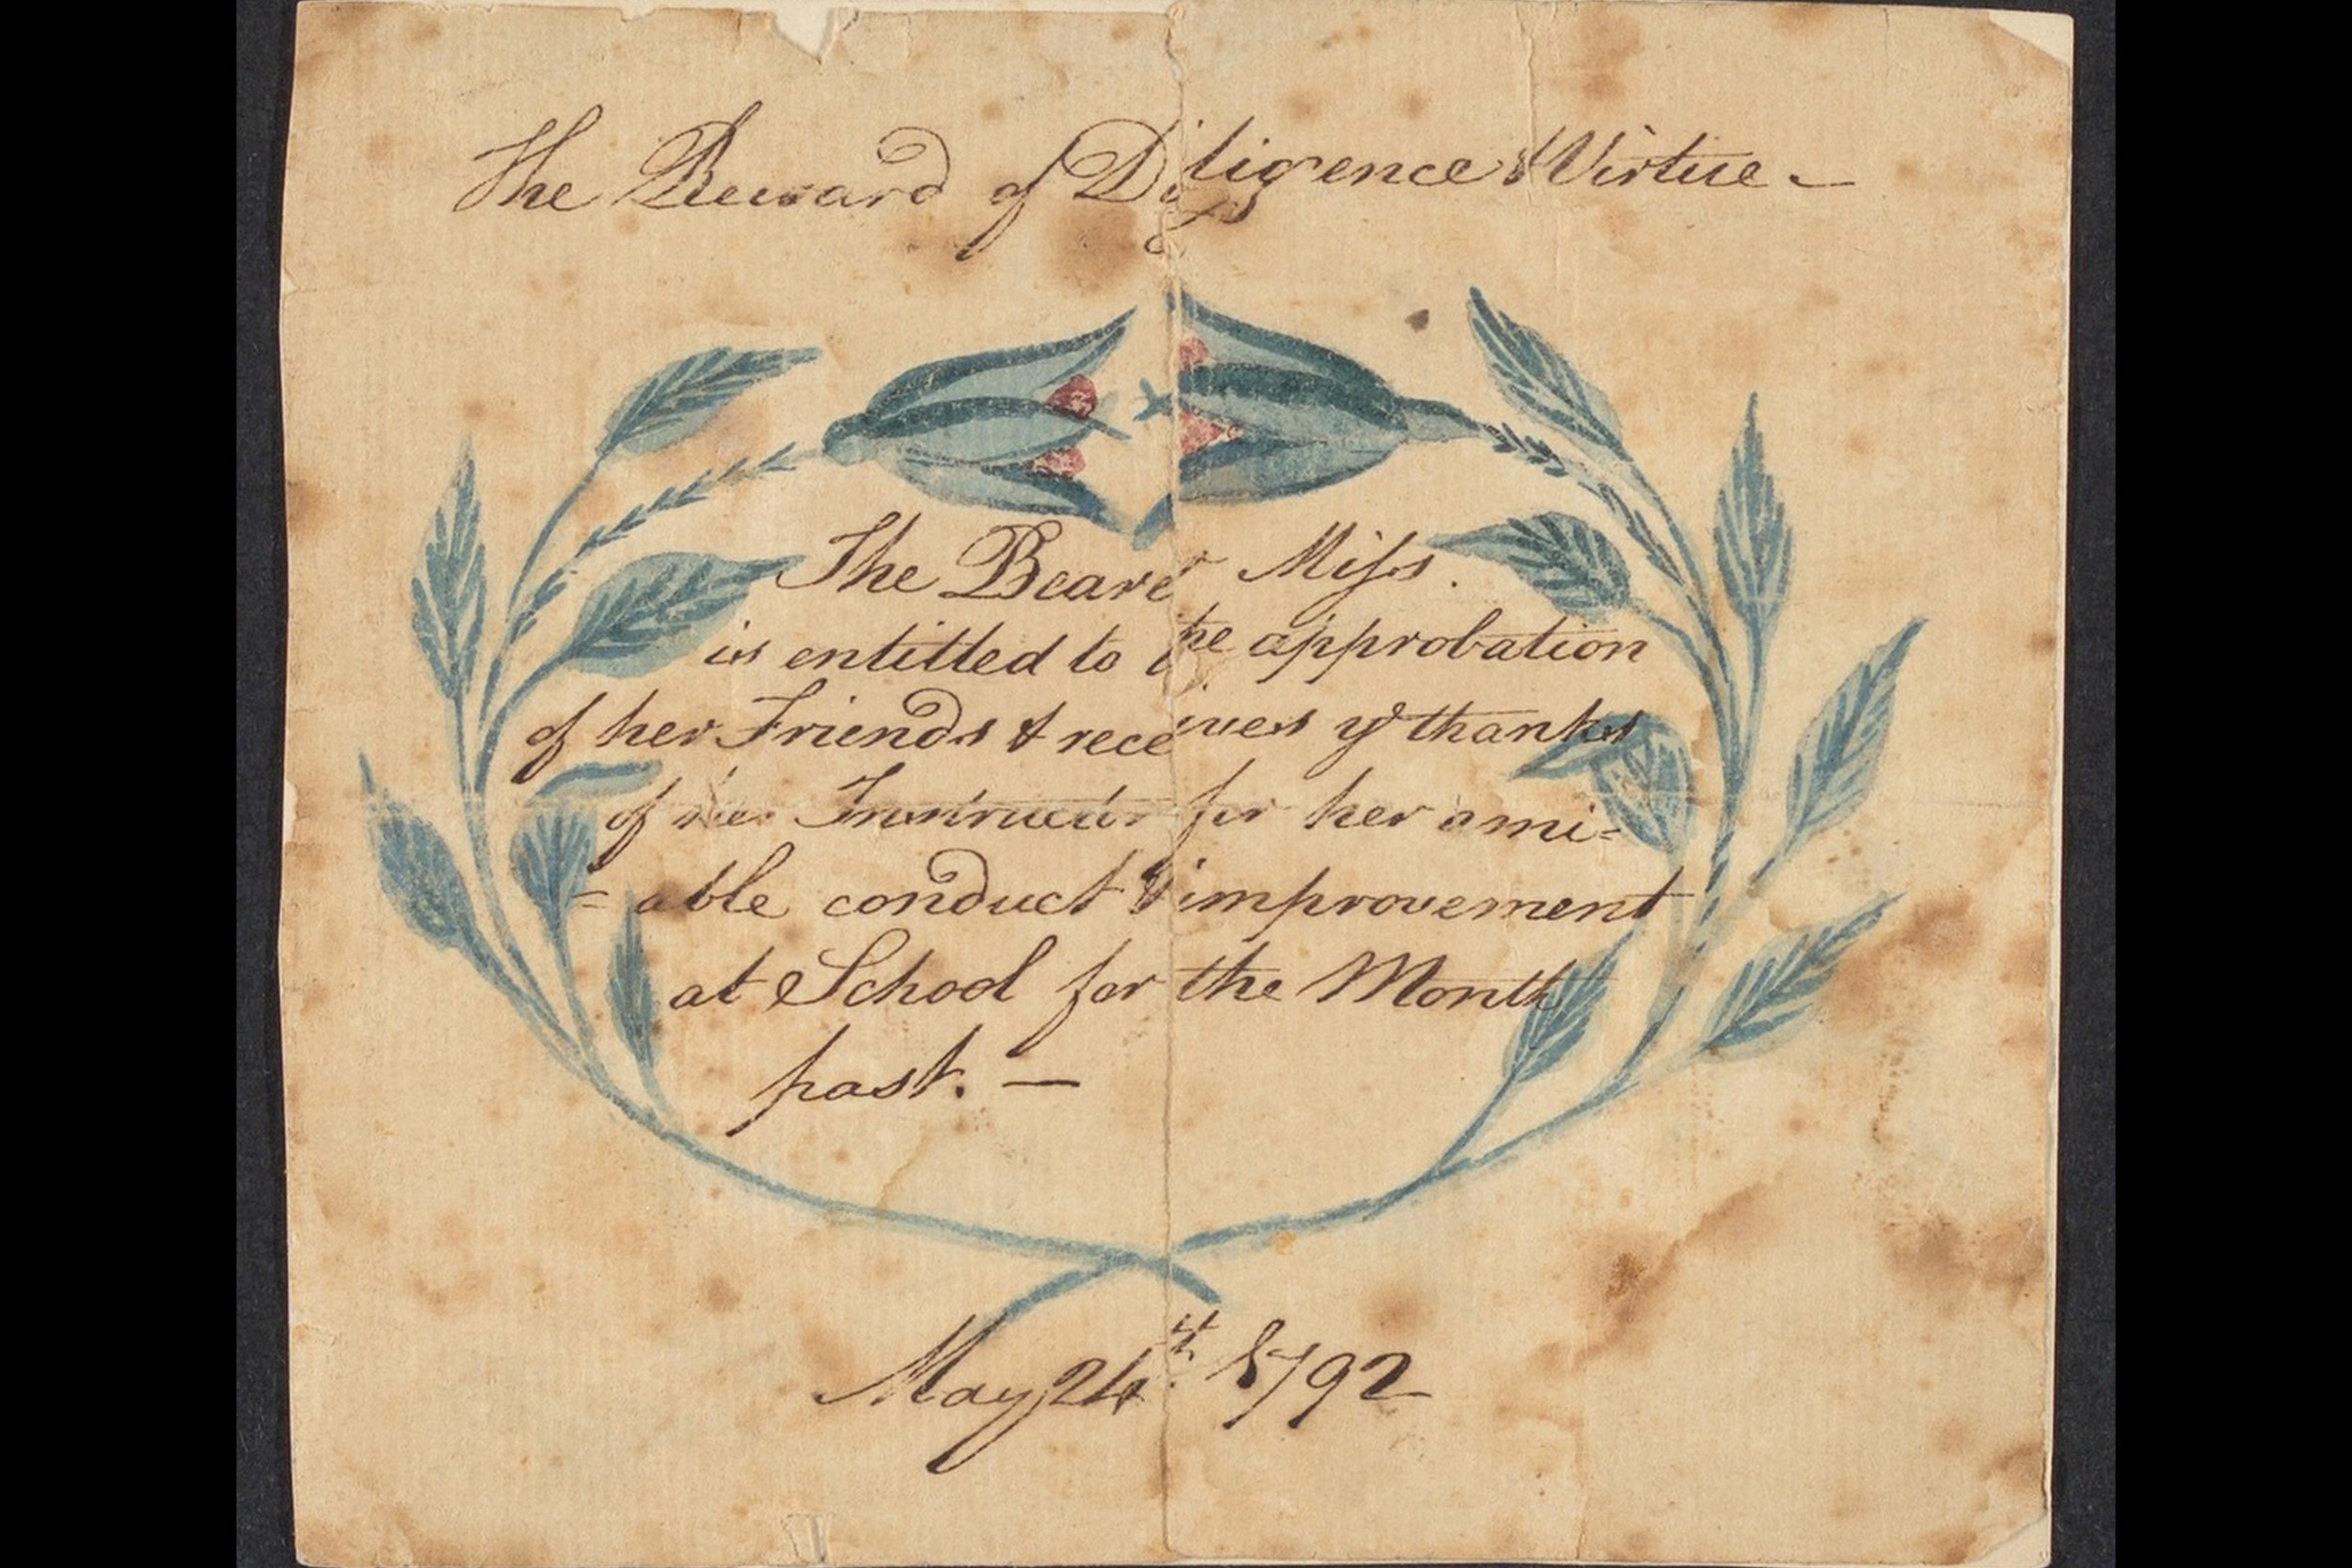 The Reward of Diligence & Virtue —
The Bearer Miss.
is entitled to the approbation
of her Friends & receives ye thanks
of her Instructor for her ami=
=able conduct & improvement
at School for the Month
past. —
May 24th. 1792